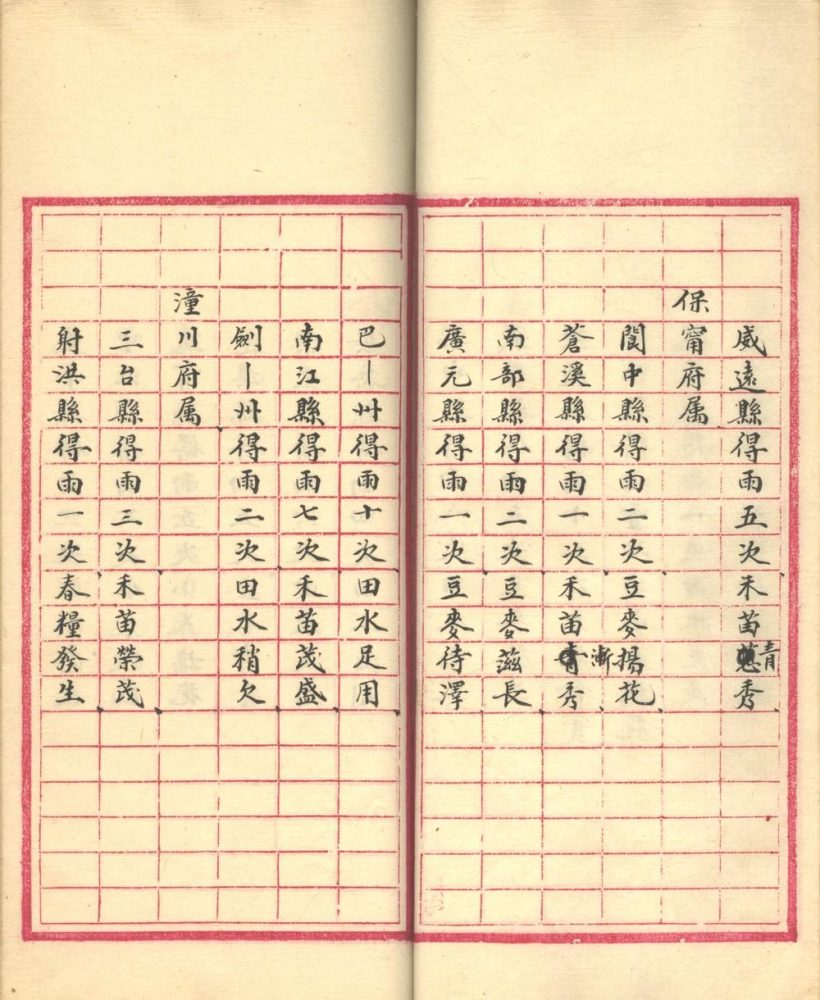 威遠縣得雨五次禾苗青秀
保甯府属
閬中縣得雨二次豆麥揚花
蒼溪縣得雨十次禾苗漸秀
南部縣得雨二次豆麥滋長
廣元縣得雨一次豆麥待澤
巴｜州得雨十次田水足用
南江縣得雨七次禾苗茂盛
劍｜州得雨二次田水稍欠
潼川府属
三台縣得雨三次禾苗榮茂
射洪縣得雨一次春糧發生